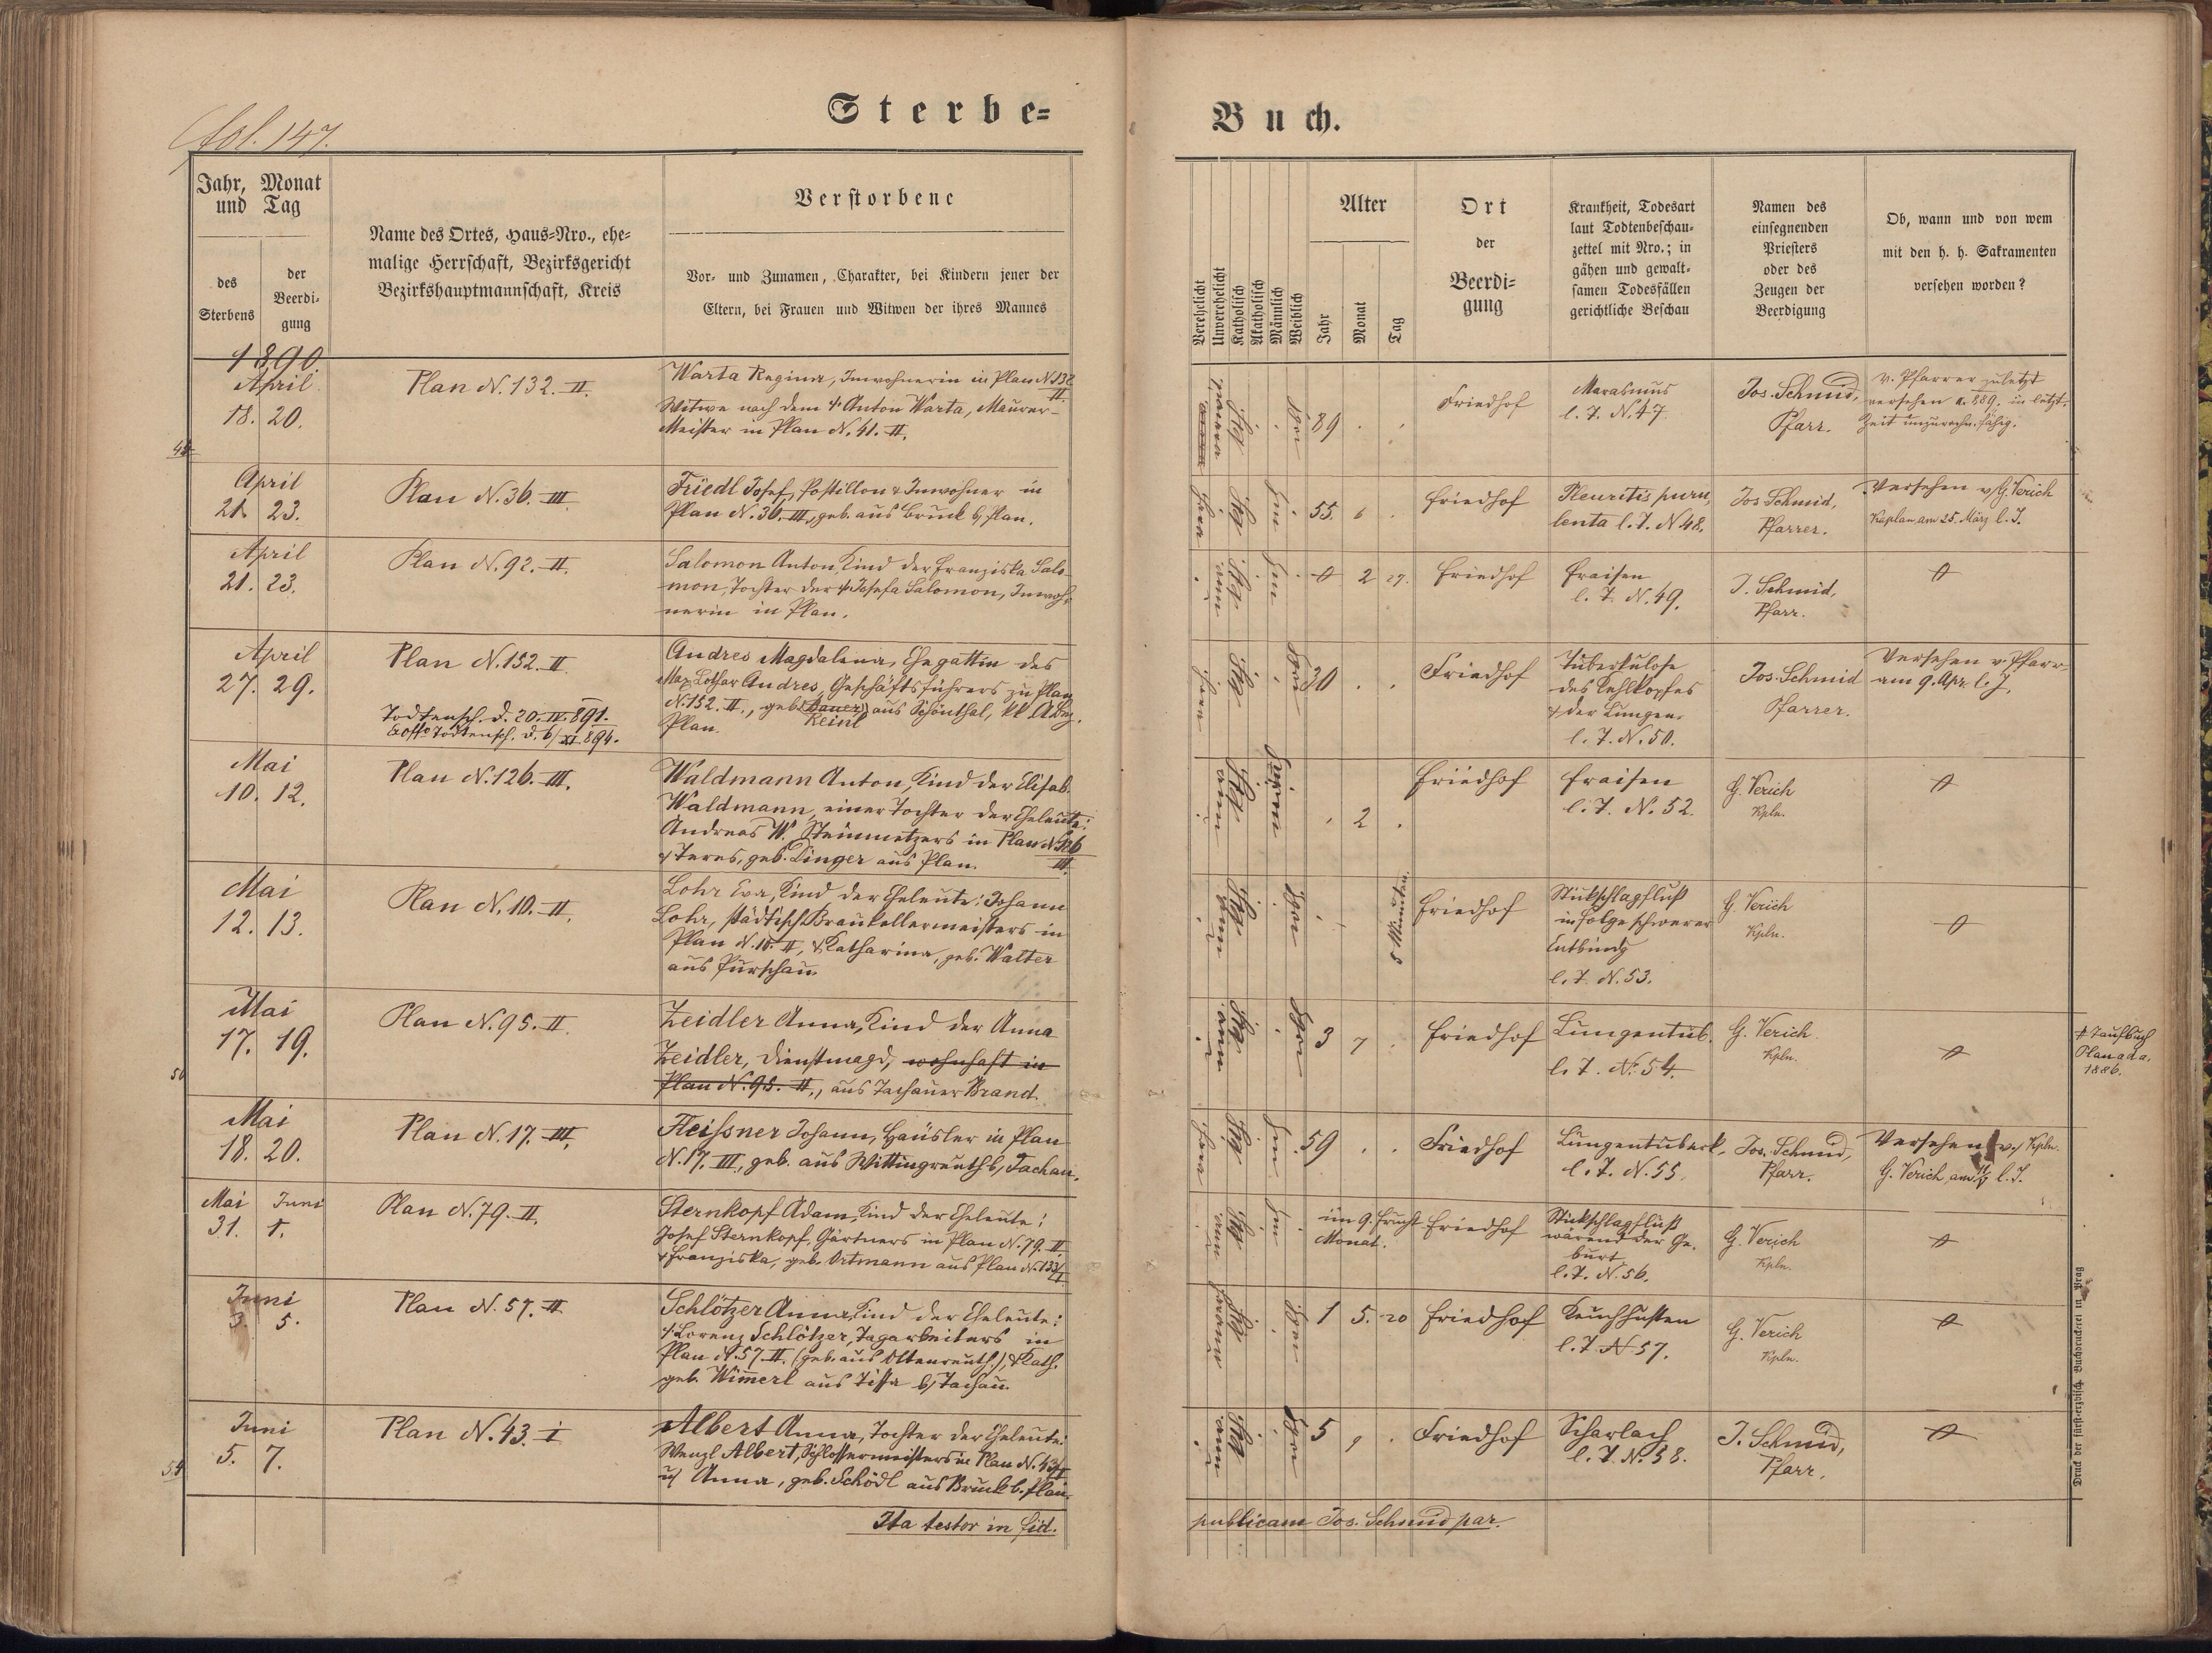 fol. 147.
Sterbe=
Buch.
Jahr, Monat
und Tag
des
Sterbens
der
Beerdi-
gung
Name des Ortes, Haus=Nro., ehe=
malige Herrschaft, Bezirksgericht
Bezirkshauptmannschaft, Kreis
Verstorbene
Vor- und Zunamen, Charakter, bei Kindern jener der
Eltern, bei Frauen und Witwen der ihres Mannes
Verehelicht
Unverehelicht
Katholisch
Akatholisch
Männlich
Weiblich
Alter
Jahr
Monat
Tag
Ort
der
Beerdi=
gung
Krankheit, Todesart
laut Todtenbeschau-
zettel mit Nro.; in
gähen und gewalt-
samen Todesfällen
gerichtliche Beschau
Namen des
einsegnenden
Priesters
oder des
Zeugen der
Beerdigung
Ob, wann und von wem
mit den h. h. Sakramenten
versehen worden?
1890.
April
18. 20.
Plan N. 132. II.
Warta Regina, Inwohnerin in Plan N. 132
II.
Witwe nach dem † Anton Warta, Maurer-
Meister in Plan N. 41. II.
89 . .
Friedhof
Marasmus
l. Z. N. 47.
Jos. Schmid,
Pfarr.
v. Pfarrer zuletzt
versehen a. 889. in letzt.
Zeit unzurechn. fähig.
April
21. 23.
Plan N. 36. III.
Friedl Josef, Postillon & Inwohner in
Plan N. 36. III., geb. aus Bruck b/ Plan.
55. 6 .
Friedhof
Pleuritis puru-
lenta l. Z. N 48.
Jos Schmid,
Pfarrer.
Versehen v/ G. Verich
Kaplan am 25. März l. J.
April
21. 23.
Plan N. 92. II.
Salomon Anton, Kind der Franziska Salo-
mon, Tochter der † Josefa Salomon, Inwoh-
nerin in Plan.
2 27.
Friedhof
Fraisen
l. Z. N. 49.
J. Schmid,
Pfarr.
April
27. 29.
Plan N. 152. II
Todtensch. d. 20. IV. 891.
Todtensch. d. 6/XI. 894.
Andres Magdalena, Ehegattin des
Max Lothar Andres, Geschäftsführers zu Plan
N. 152. II., geb. Bauer, aus Schönthal, kk. A. Bez.
Keinl
Plan.
30 . .
Friedhof
Tuberkulose
des Kehlkopfes
& der Lungen.
l. Z. N. 50.
Jos. Schmid
Pfarrer.
Versehen v. Pfarr
am 9. Apr. l. J.
Mai
10. 12.
Plan N. 126. III.
Waldmann Anton, Kind der Elisab.
Waldmann, einer Tochter der Eheleute:
Andreas W. Steinmetzers in Plan N. 126
III.
& Teres, geb. Linger aus Plan.
. 2 .
Friedhof
Fraisen
l. Z. N. 52.
G. Verich
Kpln.
Mai
12. 13.
Plan N. 10. II.
Lohr Eva, Kind der Eheleute: Johann
Lohr, städtisch. Braukellermeisters in
Plan N. 10. II, & Katharina, geb. Walter
aus Purschau.
5 Minuten.
Friedhof
Stickschlagfluß
in Folge schwerer
Entbindg
l. Z. N. 53.
G. Verich
Kpln.
Mai
17. 19.
Plan N. 95. II.
Zeidler Anna, Kind der Anna
Zeidler, Dienstmagd, wohnhaft in
Plan N. 95. II., aus Tachauer Brand.
3 7 .
Friedhof
Lungentub.
l. Z. N. 54.
G. Verich
Kpln.
# Taufbuch
Plan ad a.
1886.
Mai
18. 20.
Plan N. 17. III.
Fleissner Johann, Häusler in Plan
N. 17. III, geb. aus Wittingreuth b/ Tachau.
59 . .
Friedhof
Lungentuberk.
l. Z. N. 55.
Jos. Schmid,
Pfarr.
Versehen v./ Kpln.
G. Verich, am l. J.
Mai Juni
31. 1.
Plan N. 79. II.
Sternkopf Adam, Kind der Eheleute:
Josef Sternkopf, Gärtners in Plan N. 79. II.
& Franziska, geb. Ortmann aus Plan N. 133/I
im 9. Frucht
Monat.
Friedhof
Stickschlagfluß
wärend der Ge-
burt
l. Z. N. 56.
G. Verich
Kpln.
Juni
3 5.
Plan N. 57. II
Schlötzer Anna, Kind der Eheleute:
† Lorenz Schlötzer, Tagarbeiters in
Plan N. 57. II. (geb. aus Ottenreuth.), & Kath.
geb. Wimmerl aus Tissa b/ Tachau.
1 5. 20
Friedhof
Keuchhusten
l. Z N 57.
G. Verich
Kpln.
Juni
5. 7.
Plan N. 43. I
Albert Anna, Tochter der Eheleute:
Wenzl Albert, Schlossermeisters in Plan N. 43/I
u/ Anna, geb. Schödl aus Bruck b. Plan.
5 9 .
Friedhof
Scharlach
l. Z. N. 58.
J. Schmid,
Pfarr.
Ita testor in fid.
publicam Jos. Schmid par.
Druck der fürst-erzbisch. Buchdruckerei in Prag